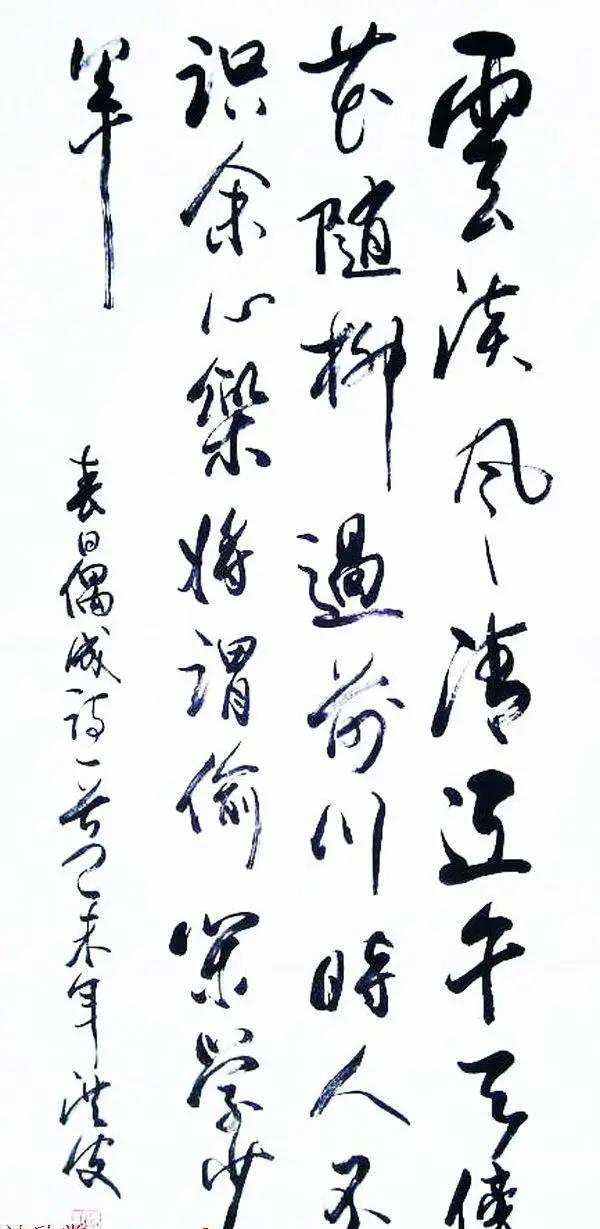 雲淡風清近午天傍
花随柳過前川時人不
识余心樂将謂偷閑學少
年
春日偶成詩一首乙未年